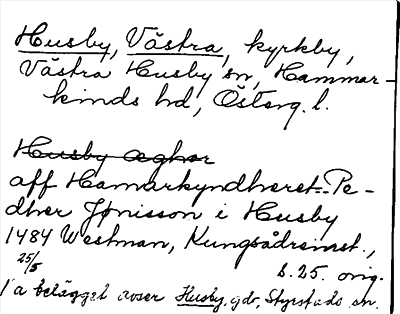 Husby, Västra, kyrkby,
Västra Husby sn, Hammar-
kinds hd, Österg. l.
Husby æghor
aff Hamarkyndhæret. Pe-
dher Jønisson i Husby
1484 Westman, Kungsådreinst.,
25/5 s. 25. orig.
1:a belägget avser Husby, gd, Styrstads sn.